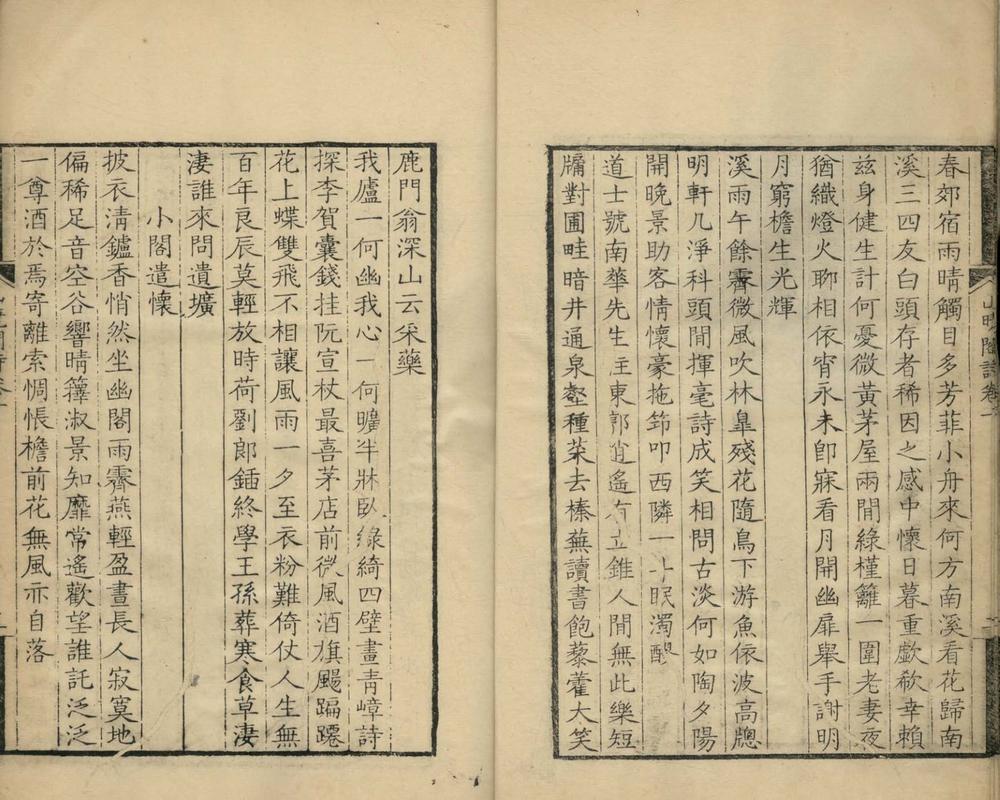 春郊宿雨晴觸目多芳菲小舟來何方南溪看花歸南
溪三四友白頭存者稀因之感中懷日暮重歔欷幸賴
茲身健生計何憂微黃茅屋兩間綠槿籬一圍老妻夜
猶織燈火聊相依宵永未卽寐看月開幽扉舉手謝明
月窮檐生光輝
溪雨午餘霽微風吹林臯殘花隨鳥下游魚依波高牕
明軒几淨科頭閒揮毫詩成笑相問古淡何如陶夕陽
開晚景助客情懷豪拖筇叩西隣一斗眠濁醪
道士號南華先生主東郭逍遙有立錐人間無此樂短
牗對圃畦暗井通泉壑種菜去榛蕪讀書飽藜藿大笑
鹿門翁深山云采藥
我廬一何幽我心一何曠半牀臥綠綺四壁畫靑嶂詩
探李賀囊錢挂阮宣杖最喜茅店前微風酒旗颺蹁躚
花上蝶雙飛不相讓風雨一夕至衣粉難倚仗人生無
百年良辰莫輕放時荷劉郎鍤終學王孫葬寒食草淒
淒誰來問遺壙
小閣遣懷
披衣淸鑪香悄然坐幽閣雨霽燕輕盈晝長人寂寞地
偏稀足音空谷響晴籜淑景知靡常遙歡望誰託泛泛
一尊酒於焉寄離索惆悵檐前花無風亦自落